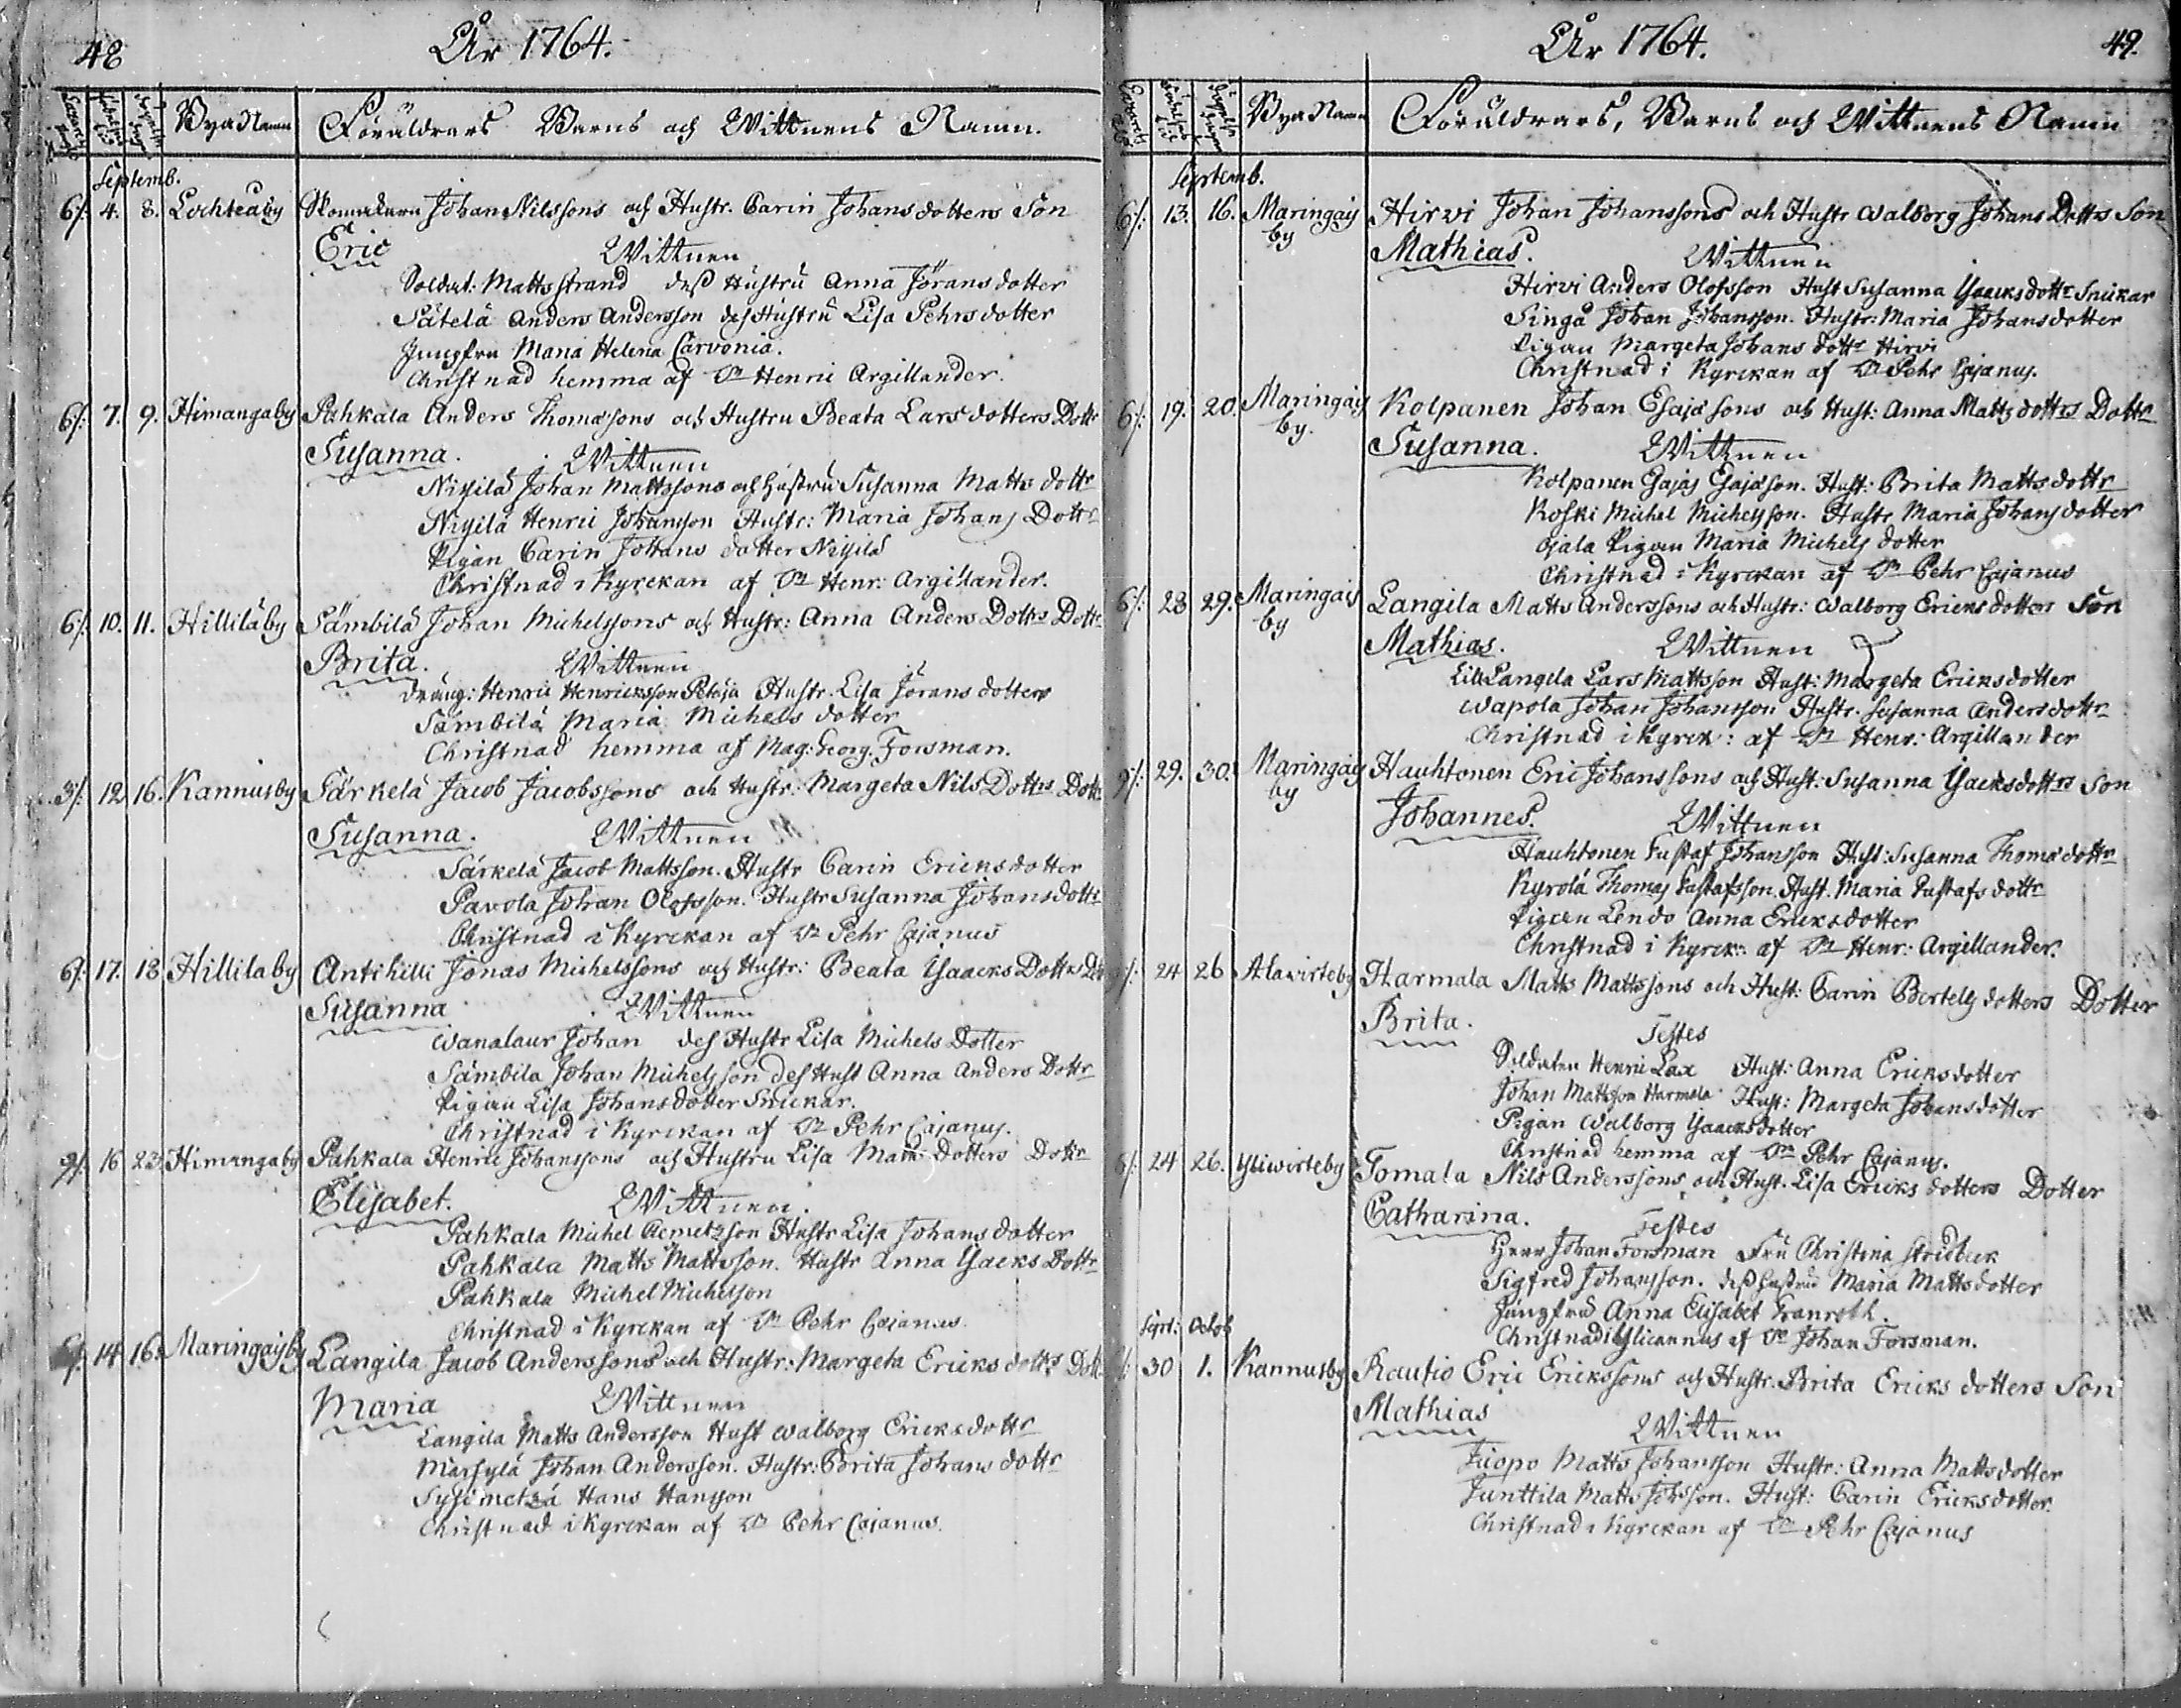 48
År 1764.
Bya Namn Föräldrars Barns och Wittnens Namn.
Septemb.
6/: 4. 8. Lochteåby Skomakarn Johan Nilssons och Hustr. Carin Johansdotters Son
Eric Wittnen
Soldat: Matts Strand dess Hustru Anna Jöransdotter
Sätelä Anders Andersson dess Hustru Lisa Pehrsdotter
Jungfru Maria Helena Carvonia.
Christnad hemma af Dn Henric Argillander.
6/: 7. 9. Himangaby Pahkala Anders Thomæsons och Hustru Beata Larsdotters Dottr
Susanna. Wittnen
Niyilä Johan Mattssons och Hustru Susanna Matts dottr
Niyilä Henric Johansson Hustr: Maria Johans Dottr
Pigan Carin Johans dotter Niyilä
Christnad i Kyrckan af Dn Henr: Argillander.
6/: 10. 11. Hilliläby Sämbilä Johan Michelssons och Hustr: Anna Anders Dottrs Dottr
Brita. Wittnen
Dräng: Henric Henricksson Petäjä Hustr. Lisa Jörans dotter
Sämbilä Maria Michels dotter
Christnad hemma af Mag: Georg. Forsman.
3/: 12 16. Kannusby Särkelä Jacob Jacobssons och Hustr: Margeta Nils Dottrs Dottr
Susanna. Wittnen
Särkelä Jacob Mattsson. Hustr Carin Ericksdotter
Pavola Johan Olofsson. Hustr Susanna Johansdottr
Christnad i Kyrckan af Dn Pehr Cajanus
6/: 17. 18 Hillilaby Antihilli Jonas Michelssons och Hustr: Beata Isaacks Dottrs Dottr
Susanna Wittnen
Wanalaur Johan dess Hustr Lisa Michels Dotter
Sämbila Johan Michelsson dess Hust Anna Anders Dottr
Pigan Lisa Johansdotter Snickar.
Christnad i Kyrckan af Dn Pehr Cajanus.
9/: 16 23 Himangaby Pahkala Henric Johanssons och Hustru Lisa Matts Dotters Dottr
Elisabet. Wittnen.
Pahkala Michel Clemetzson Hustr Lisa Johansdotter
Pahkala Matts Mattsson. Hustr Anna Isacks Dottr
Pahkala Michel Michelsson
Christnad i Kyrckan af Dn Pehr Cajanus
6/: 14 16. Maringaisby Langila Jacob Anderssons och Hustr: Margeta Ericks dottrs Dottr
Maria Wittnen
Langila Matts Andersson Hust Walborg Ericksdottr
Märsylä Johan Andersson. Hustr: Brita Johans dottr
Sysimetzä Hans Hansson
Christnad i Kyrckan af Dn Pehr Cajanus.
År 1764. 49.
Bya Namn Föräldrars, Barns och Wittnens Namn
Septemb.
6/: 13. 16. Maringais Hirvi Johan Johanssons och Hustr Walborg Johans Dottrs Son
by
Mathias. Wittnen
Hirvi Anders Olofsson Hust Susanna Isaacksdottr Snickar
Singå Johan Johansson. Hustr: Maria Johansdotter
Pigan Margeta Johans dottr Hirvi
Christnad i Kyrckan af Dn Pehr Cajanus.
6/: 19. 20. Maringais Kolpanen Johan Esajæsons och Hust: Anna Matts dottrs Dottr
by.
Susanna. Wittnen
Kolpanen Esajas Esajæson. Hust: Brita Matts dottr
Koski Michel Michelsson. Hustr Maria Johansdotter
Ojala Pigan Maria Michels dotter
Christnad i Kyrckan af Dn Pehr Cajanus
6/: 28 29. Maringais Langila Matts Anderssons och Hustr: Walborg Ericks dotters Son
by
Mathias. Wittnen
Lill Langila Lars Mattsson Hust: Margeta Ericksdotter
Wapola Johan Johansson Hustr. Susanna Andersdottr
Christnad i Kyrck: af Dn Henr: Argillander
9/: 29. 30. Maringais Hauhtonen Eric Johanssons och Hust: Susanna Isacksdottrs Son
by
Johannes. Wittnen
Hauhtonen Gustaf Johansson Hust: Susanna Thomædottr
Kyrolä Thomas Gustafsson. Hust. Maria Gustafs dottr
Pigan Lendo Anna Ericksdotter
Christnad i Kyrck: af Dn Henr: Argillander.
24 26 Alavirteby Harmala Matts Mattssons och Hust: Carin Bertels dotters Dotter
Brita. Testes
Soldaten Henric Lax Hust: Anna Ericksdotter
Johan Mattsson Harmala Hust: Margeta Johansdotter
Pigan Walborg Isaacksdotter
Christnad hemma af Dn Pehr Cajanus.
24 26. Yliwirteby Tomala Nils Anderssons och Hust. Lisa Ericks dotters Dotter
Catharina. Testes
Herr Johan Forsman Fru Christina Stridbeck
Sigfred Johansson. dess Hustru Maria Mattsdotter
Jungfru Anna Elisabet Granroth.
Christnad i Ylicannus af Dn Johan Forsman.
Sept: Octob
30 1. Kannusby Rautio Eric Erickssons och Hustr. Brita Ericks dotters Son
Mathias Wittnen
Juopo Matts Johansson Hustr: Anna Mattsdotter
Junttila Matts Johsson. Hust: Carin Ericksdotter.
Christnad i Kyrckan af Dn Pehr Cajanus